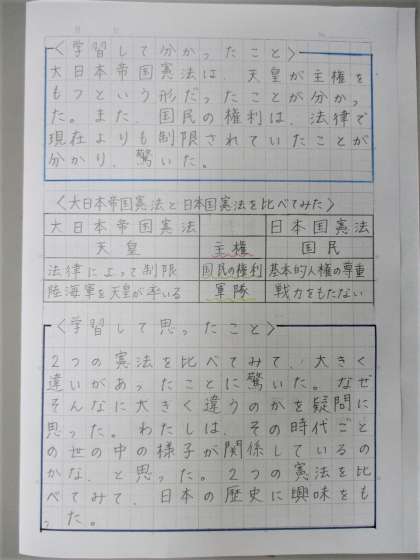 〈学習して分かったこと〉
大日本帝国憲法は、天皇が主権を
もつという形だったことが分かっ
た。また、国民の権利は、法律で
現在よりも制限されていたことが
分かり、驚いた。
〈大日本帝国憲法と日本国憲法を比べてみた〉
大日本帝国憲法 日本国憲法
天皇 主権 国民
法律によって制限 国民の権利 基本的人権の尊重
陸海軍を天皇が率いる 軍隊 戦力をもたない
〈学習して思ったこと〉
2つの憲法を比べてみて、大きく
違いがあったことに驚いた。なぜ
そんなに大きく違うのかを疑問に
思った。わたしは、その時代ごと
の世の中の様子が関係しているの
かな、と思った。2つの憲法を比
べてみて、日本の歴史に興味をも
った。